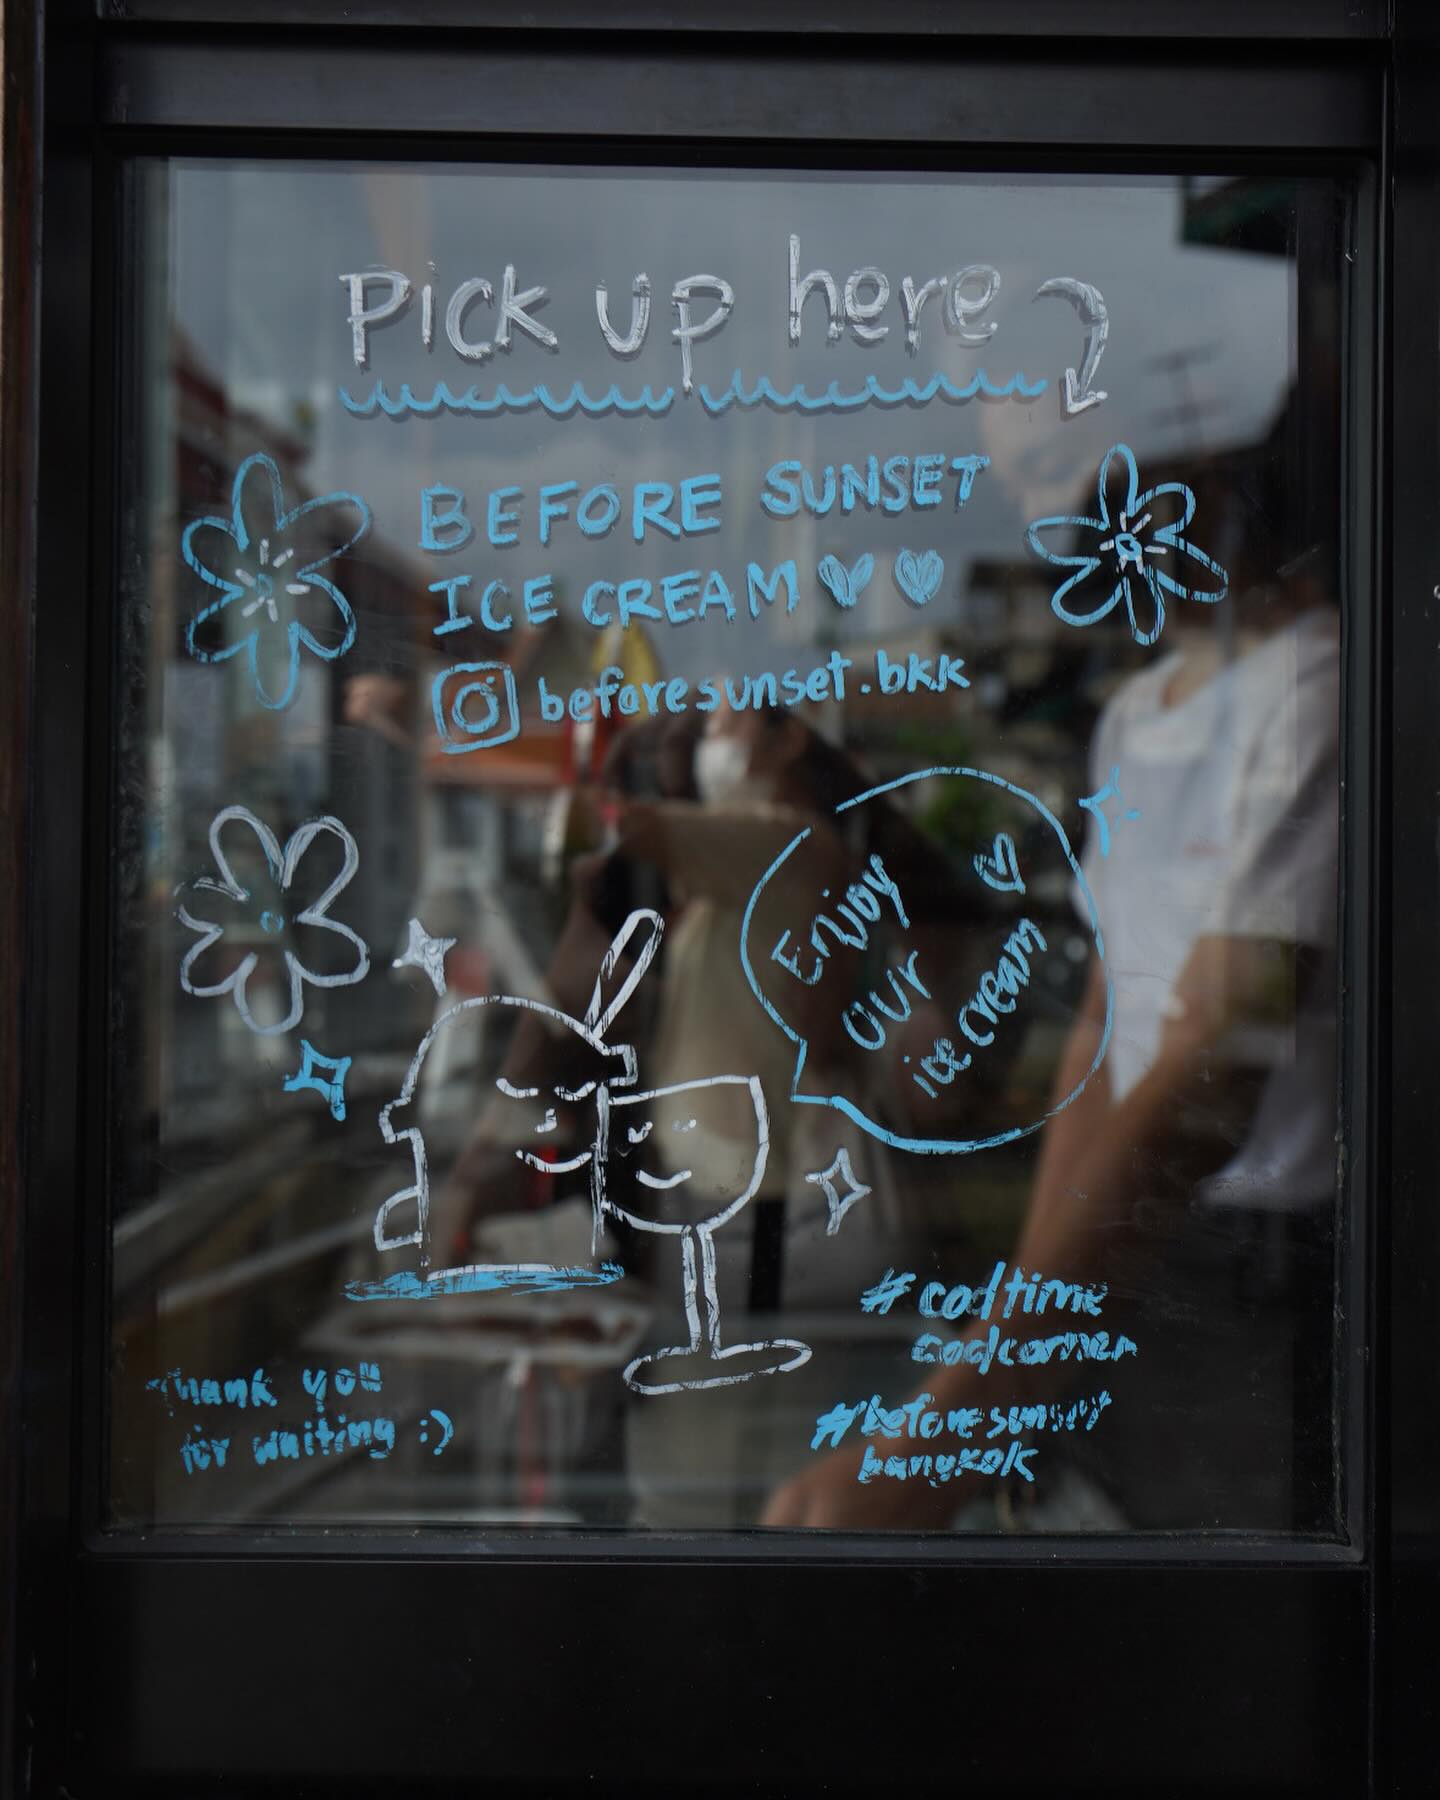 Pick up here
BEFORE SUNSET
ICE CREAM
beforesunset.bkk
Enjoy
our
ice cream
#codtime
codcorner
#beforesunset
bangkok
Thank you
for waiting :)